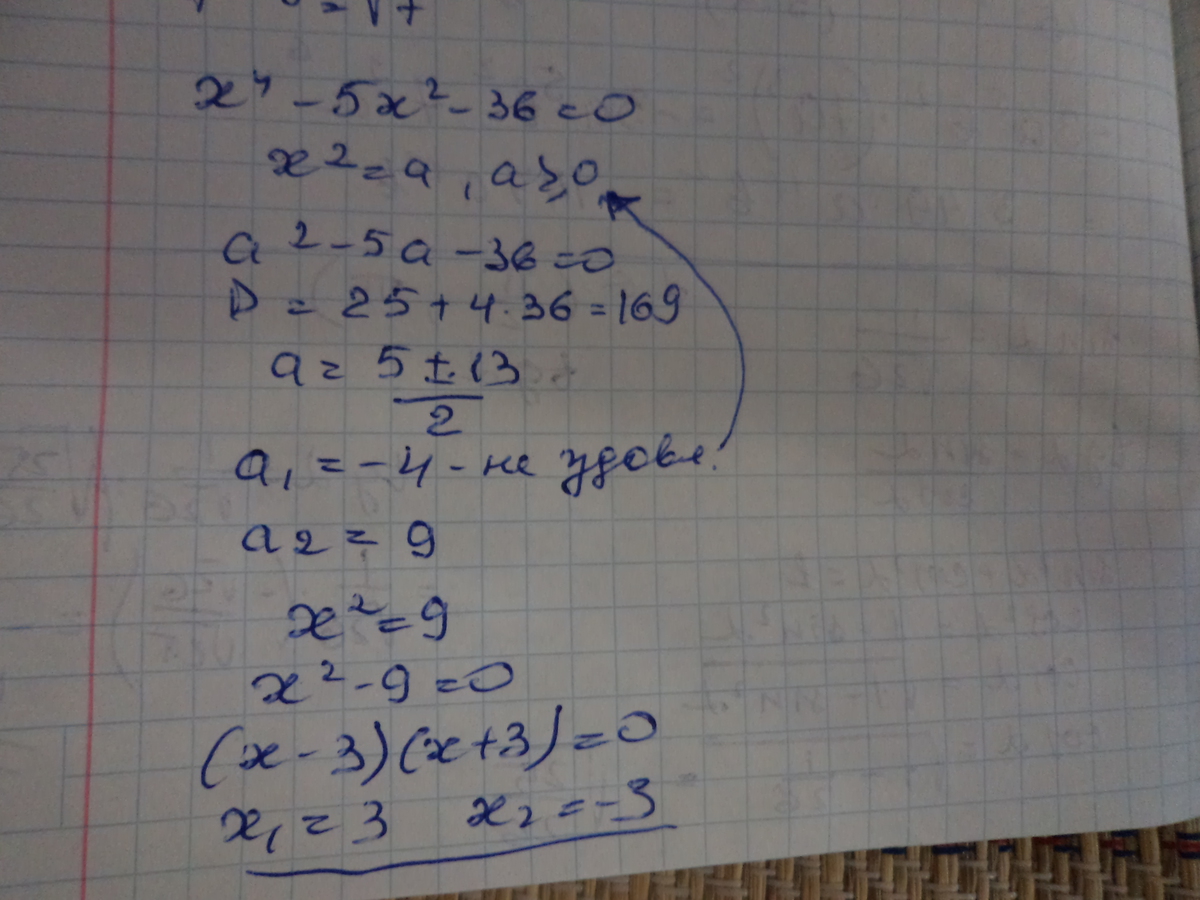 = √7
x⁴ - 5x² - 36 = 0
x² = a, a ≥ 0
a² - 5a - 36 = 0
D = 25 + 4·36 = 169
a = 5 ± 13
2
a₁ = -4 - не удовл.
a₂ = 9
x² = 9
x² - 9 = 0
(x - 3)(x + 3) = 0
x₁ = 3 x₂ = -3